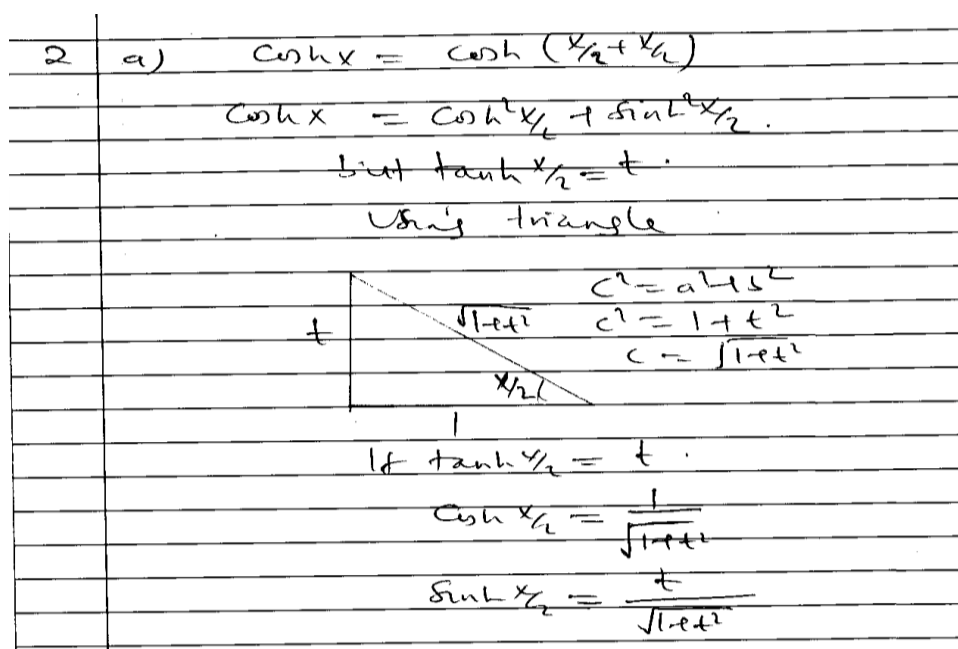 2 a) Coshx = cosh (x/2 + x/2)
Coshx = Cosh²x/2 + Sinh²x/2.
but tanh x/2 = t.
Using triangle
t
√1+t²
x/2
1
c² = a²+b²
c² = 1 + t²
c = √1+t²
If tanh x/2 = t.
Cosh x/2 = 1/√1+t²
Sinh x/2 = t/√1+t²